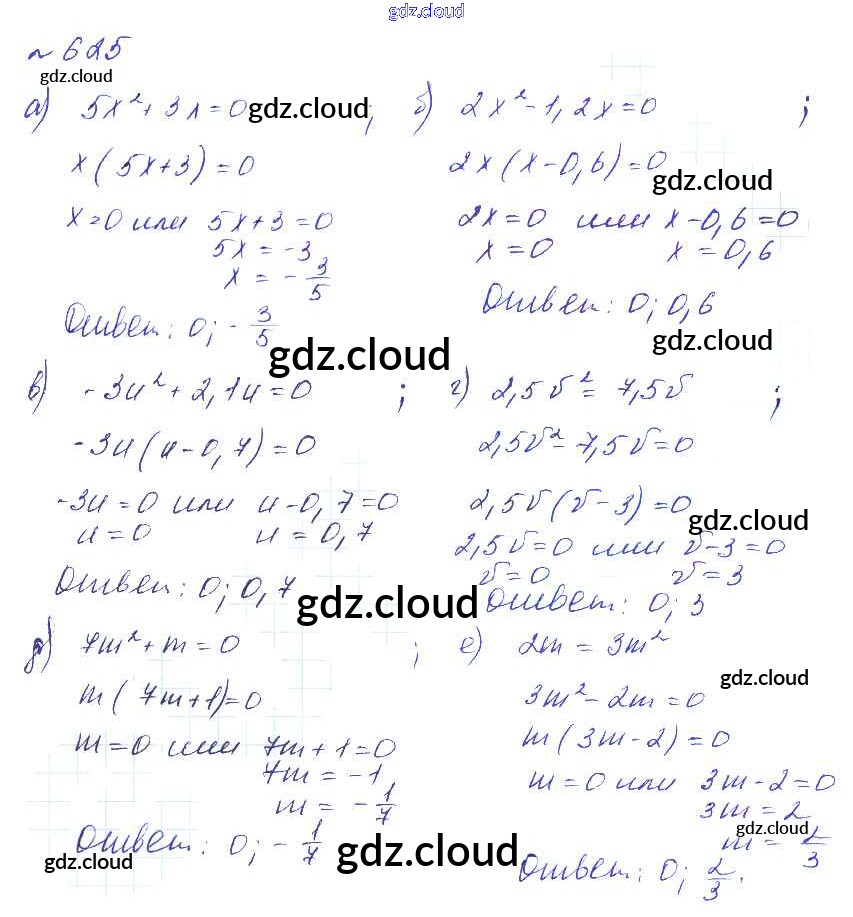 gdz.cloud
№ 625
gdz.cloud
а) 5x² + 3x = 0 gdz.cloud ;
x(5x+3) = 0
x=0 или 5x+3=0
5x = -3
x = -3/5
Ответ: 0; -3/5
б) 2x² - 1,2x = 0 ;
2x(x-0,6)=0
gdz.cloud
2x=0 или x-0,6=0
x=0 x=0,6
Ответ: 0; 0,6
gdz.cloud
gdz.cloud
в) -3u² + 2,1u = 0 ;
-3u(u-0,7)=0
-3u=0 или u-0,7=0
u=0 u=0,7
Ответ: 0; 0,7
gdz.cloud
г) 2,5v² = 7,5v ;
2,5v² - 7,5v = 0
2,5v(v-3)=0
gdz.cloud
2,5v=0 или v-3=0
v=0 v=3
Ответ: 0; 3
д) 7m² + m = 0 ;
m(7m+1)=0
m=0 или 7m+1=0
7m = -1
m = -1/7
Ответ: 0; -1/7
gdz.cloud
gdz.cloud
е) 2m = 3m²
gdz.cloud
3m² - 2m = 0
m(3m-2)=0
m=0 или 3m-2=0
3m=2
gdz.cloud
m = 2/3
Ответ: 0; 2/3.
gdz.cloud